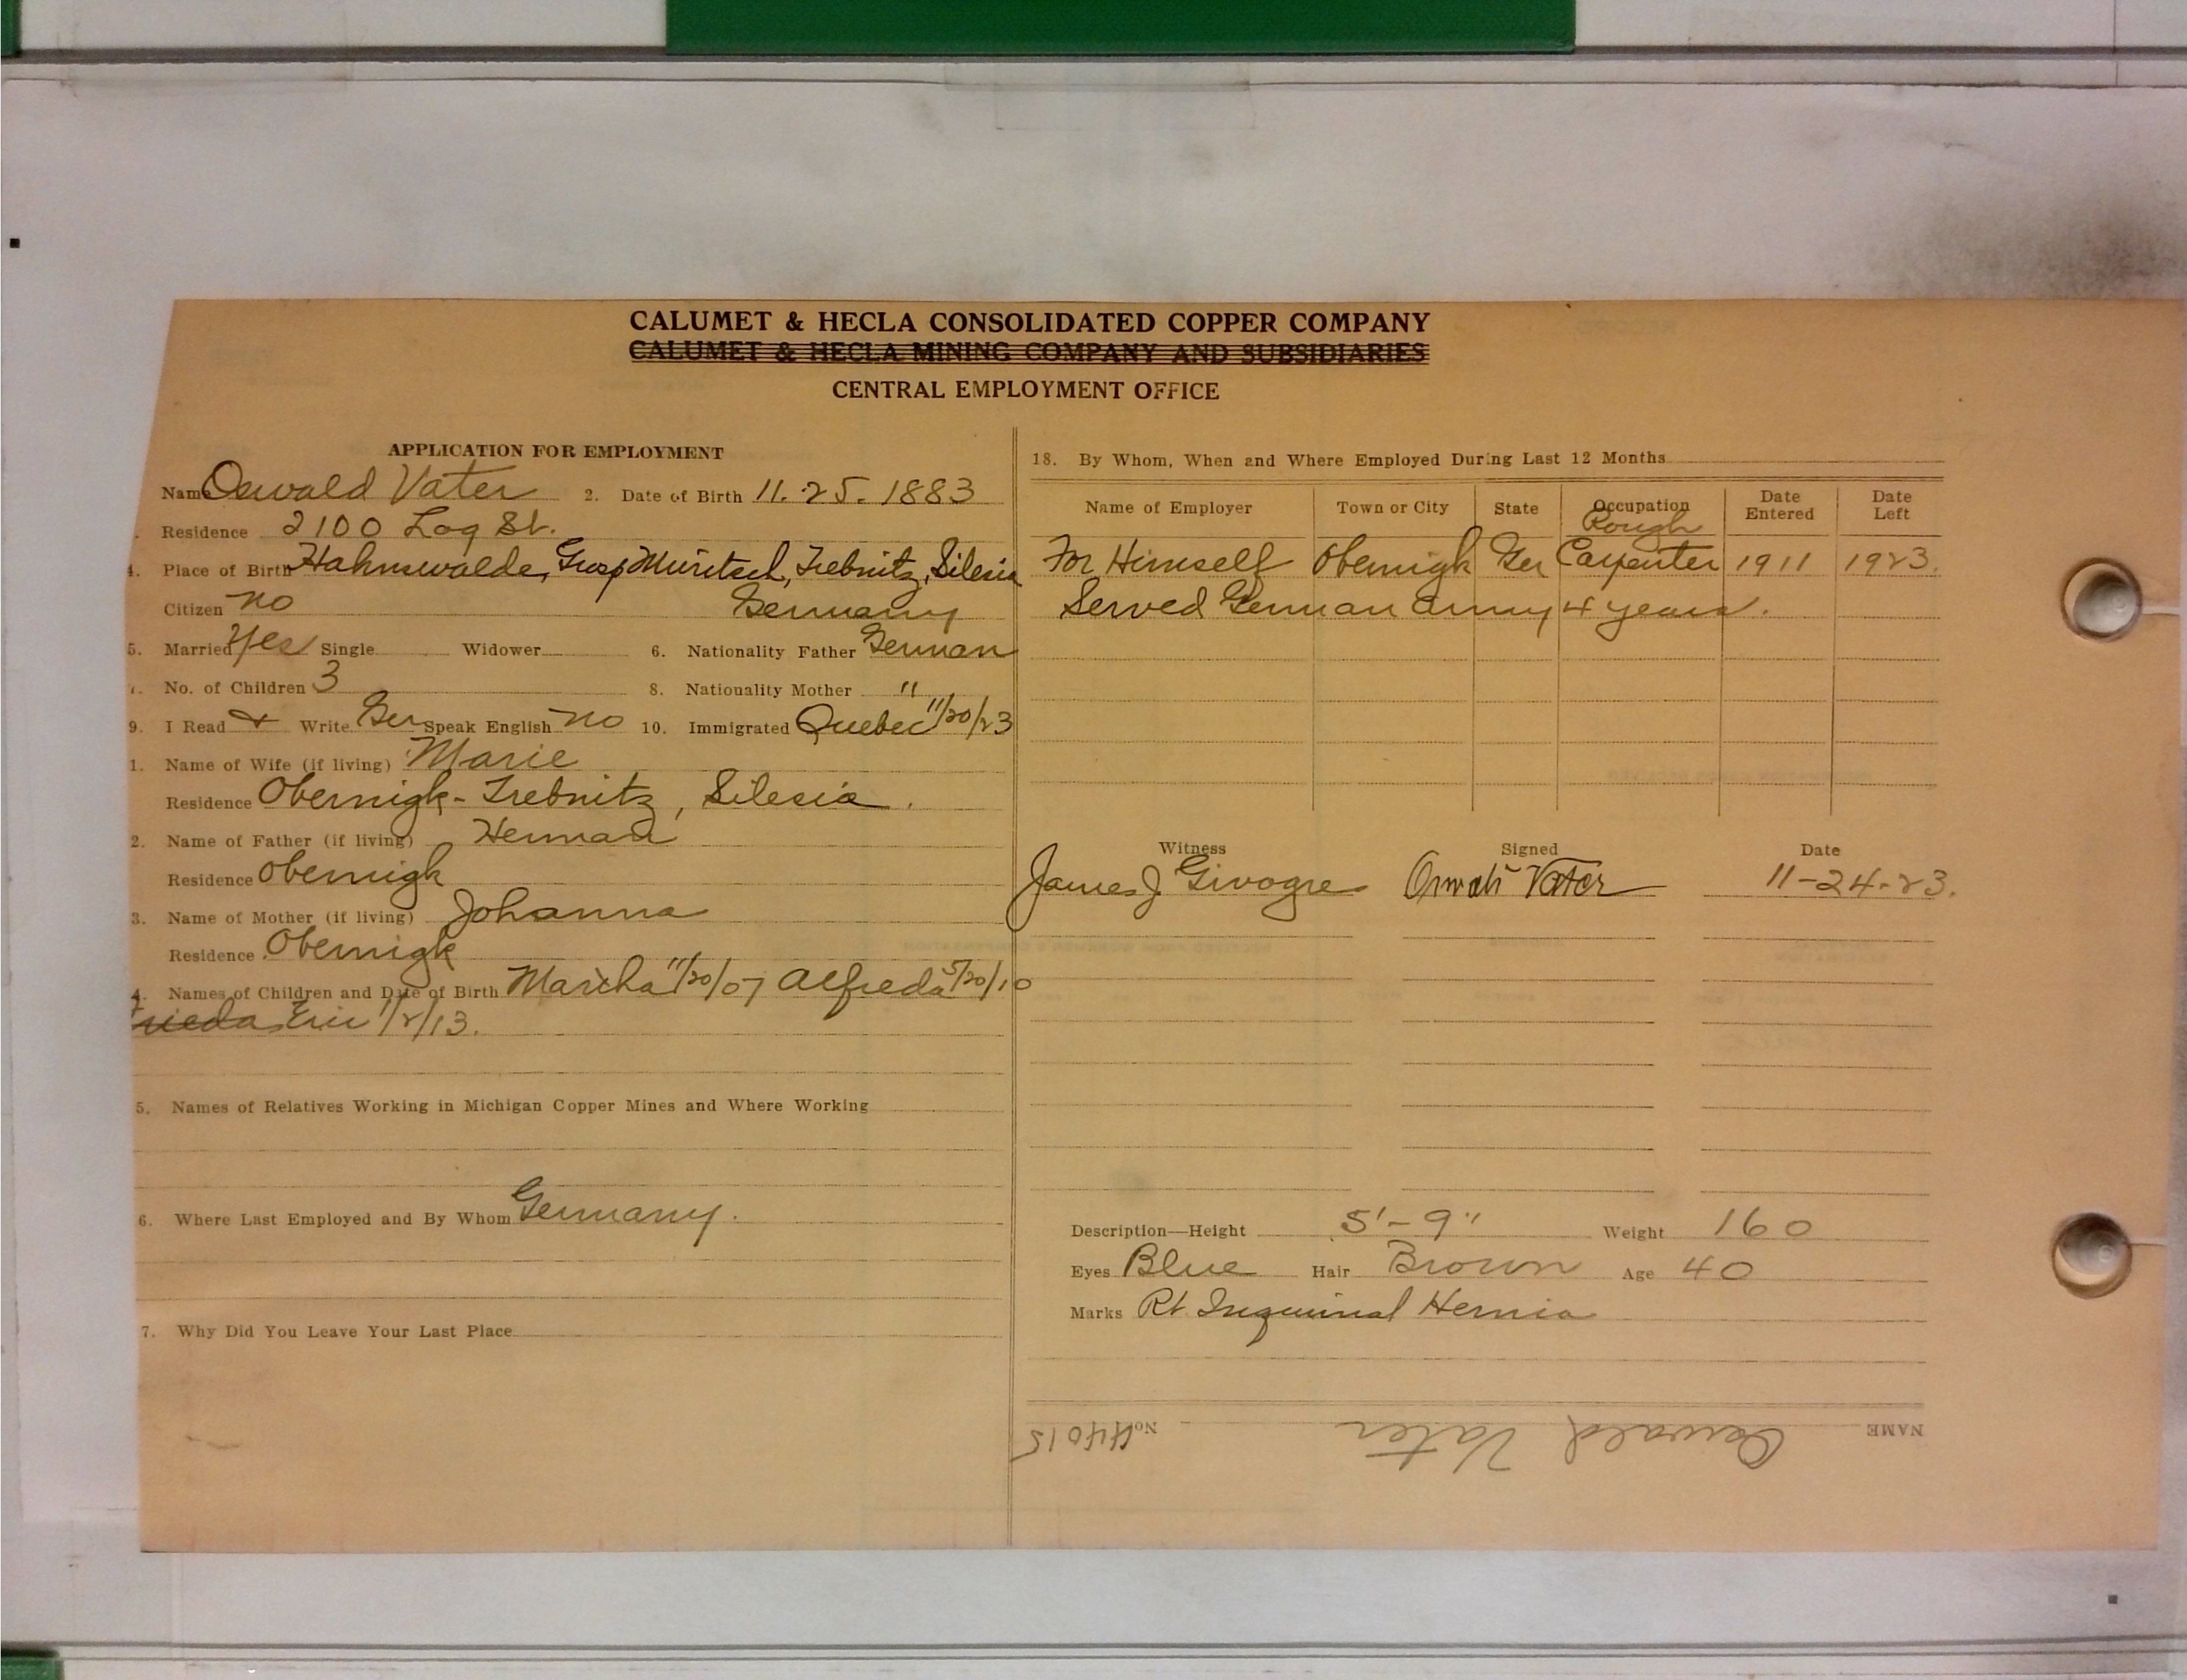 CALUMET & HECLA CONSOLIDATED COPPER COMPANY
CALUMET & HECLA MINING COMPANY AND SUBSIDIARIES
CENTRAL EMPLOYMENT OFFICE
APPLICATION FOR EMPLOYMENT
Name Oswald Vater 2. Date of Birth 11. 25. 1883
Residence 2100 Log St.
4. Place of Birth Hahnswalde, Muritsch, Trebnitz, Silesia
Citizen no Germany
5. Married Yes Single Widower 6. Nationality Father German
7. No. of Children 3 8. Nationality Mother "
9. I Read & Write Ger Speak English no 10. Immigrated Quebec 11/20/23
1. Name of Wife (if living) Marie
Residence Obernigk - Trebnitz, Silesia.
2. Name of Father (if living) Herman
Residence Obernigk
3. Name of Mother (if living) Johanna
Residence Obernigk
4. Names of Children and Date of Birth Martha 11/20/07 Alfreda 5/20/10
Frieda Eric 1/2/13.
5. Names of Relatives Working in Michigan Copper Mines and Where Working
6. Where Last Employed and By Whom Germany.
7. Why Did You Leave Your Last Place
18. By Whom, When and Where Employed During Last 12 Months
Name of Employer Town or City State Occupation Date Entered Date Left
Rough
For Himself Obernigk Ger Carpenter 1911 1923.
Served German Army 4 years.
Witness Signed Date
James J Givogre Oswald Vater 11-24-23.
Description—Height 5'-9" Weight 160
Eyes Blue Hair Brown Age 40
Marks Rt. Inguinal Hernia
NAME Oswald Vater No. 44015